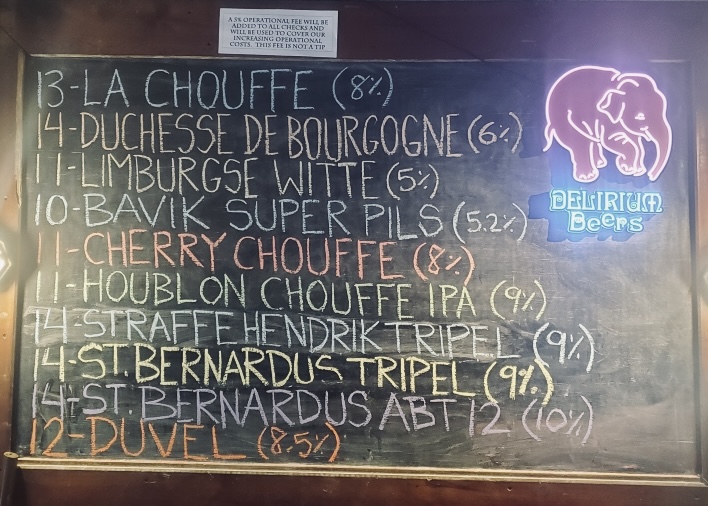 A 5% OPERATIONAL FEE WILL BE
ADDED TO ALL CHECKS AND
WILL BE USED TO COVER OUR
INCREASING OPERATIONAL
COSTS. THIS FEE IS NOT A TIP
13-LA CHOUFFE (8%)
14-DUCHESSE DE BOURGOGNE (6%)
11-LIMBURGSE WITTE (5%)
10-BAVIK SUPER PILS (5.2%)
11-CHERRY CHOUFFE (8%)
11-HOUBLON CHOUFFE IPA (9%)
14-STRAFFE HENDRIK TRIPEL (9%)
14-ST. BERNARDUS TRIPEL (9%)
14-ST. BERNARDUS ABT 12 (10%)
12-DUVEL (8.5%)
DELIRIUM
Beers